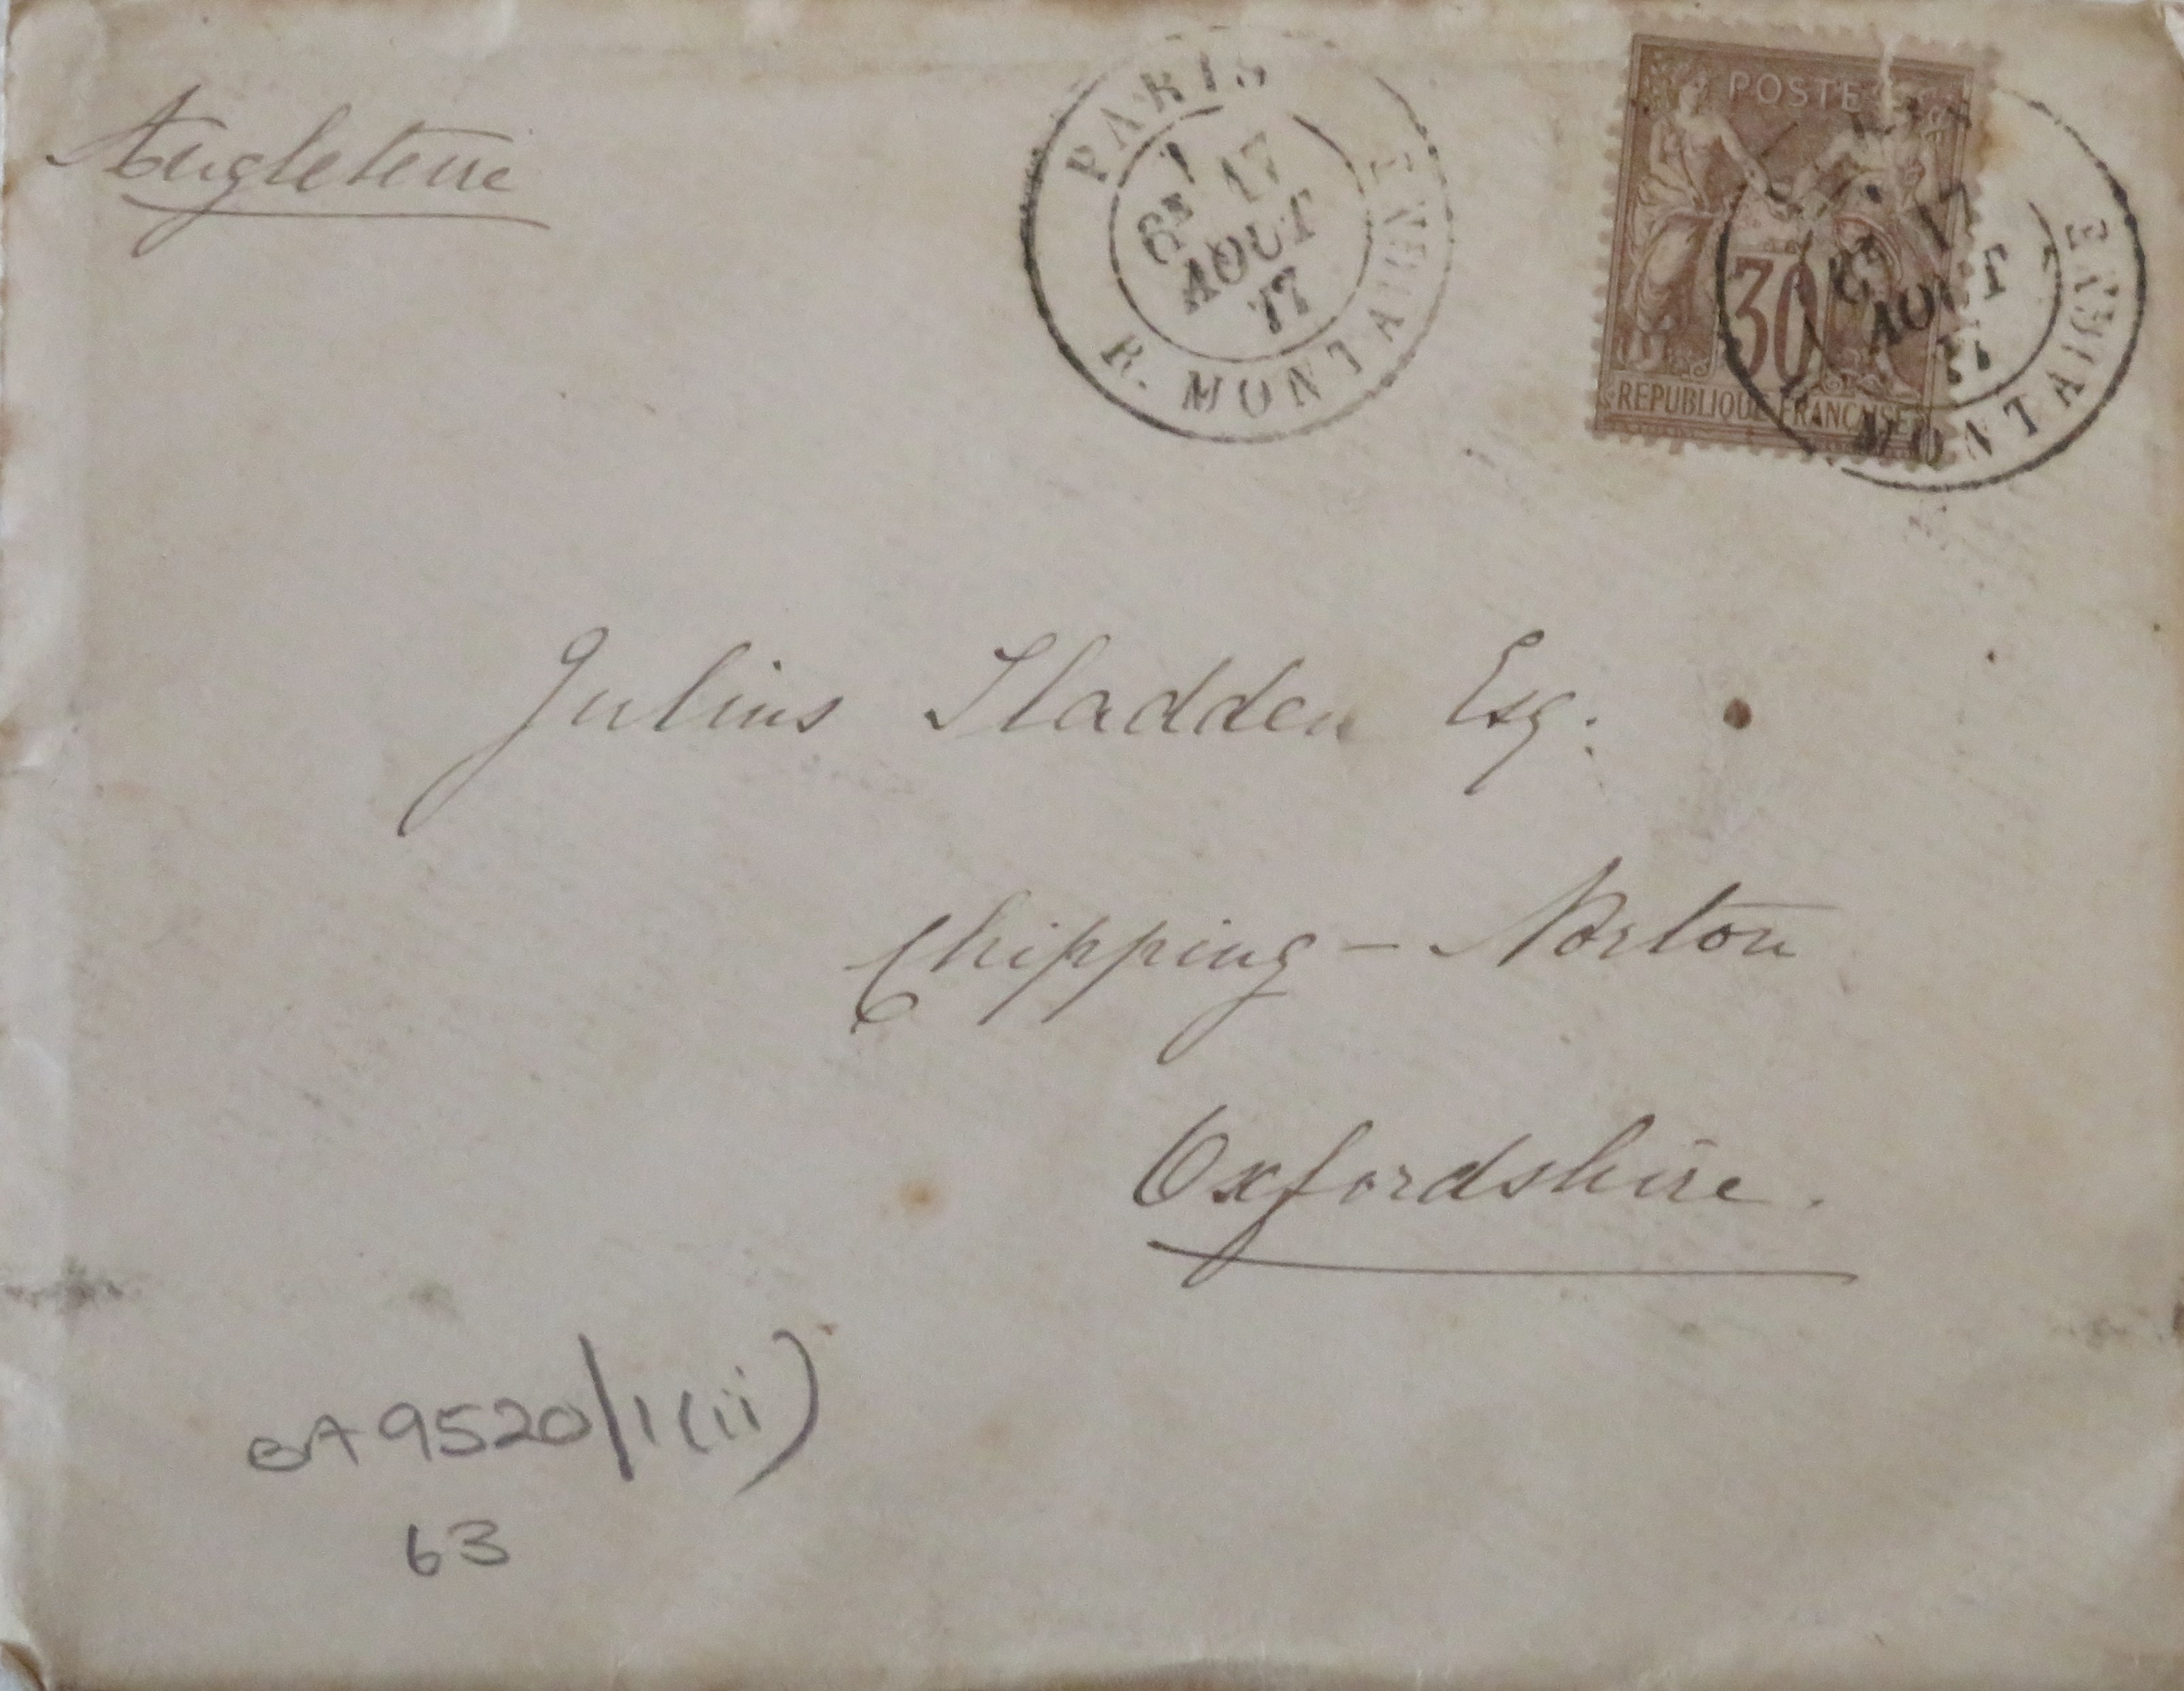 Angleterre
PARIS
1
6E 17
AOUT
77
R. MONTAIGNE
POSTE
30
REPUBLIQUE FRANCAISE
17
AOUT
77
MONTAIGNE
Julius Sladden Esq:
Chipping - Norton
Oxfordshire.
BA9520/1(ii)
63